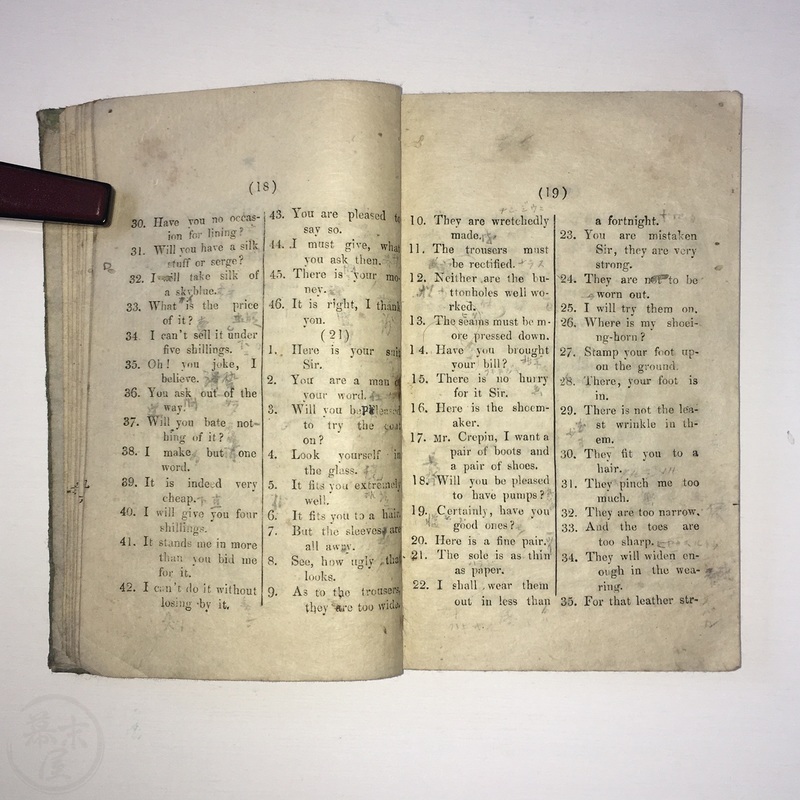 (18)
30. Have you no occas-
ion for lining?
31. Will you have a silk
stuff or serge?
32. I will take silk of
a skyblue.
33. What is the price
of it?
34 I can't sell it under
five shillings.
35. Oh! you joke, I
believe.
36. You ask out of the
way!
37. Will you bate not-
hing of it?
38. I make but one
word.
39. It is indeed very
cheap.
40. I will give you four
shillings.
41. It stands me in more
than you bid me
for it.
42. I can't do it without
losing by it.
43. You are pleased to
say so.
44. I must give, what
you ask then.
45. There is your mo-
ney.
46. It is right, I thank
you.
(21)
1. Here is your suit
Sir.
2. You are a man of
your word.
3. Will you be pleased
to try the coat
on?
4. Look yourself in
the glass.
5. It fits you extremely
well.
6. It fits you to a hair.
7. But the sleeves are
all away.
8. See, how ugly that
looks.
9. As to the trousers,
they are too wide.
(19)
10. They are wretchedly
made.
11. The trousers must
be rectified.
12. Neither are the bu-
ttonholes well wo-
rked.
13. The seams must be m-
ore pressed down.
14. Have you brought
your bill?
15. There is no hurry
for it Sir.
16. Here is the shoem-
aker.
17. Mr. Crepin, I want a
pair of boots and
a pair of shoes.
18. Will you be pleased
to have pumps?
19. Certainly, have you
good ones?
20. Here is a fine pair.
21. The sole is as thin
as paper.
22. I shall wear them
out in less than
a fortnight.
23. You are mistaken
Sir, they are very
strong.
24. They are not to be
worn out.
25. I will try them on.
26. Where is my shoei-
ng-horn?
27. Stamp your foot up-
on the ground.
28. There, your foot is
in.
29. There is not the lea-
st wrinkle in th-
em.
30. They fit you to a
hair.
31. They pinch me too
much.
32. They are too narrow.
33. And the toes are
too sharp.
34. They will widen en-
ough in the wea-
ring.
35. For that leather str-